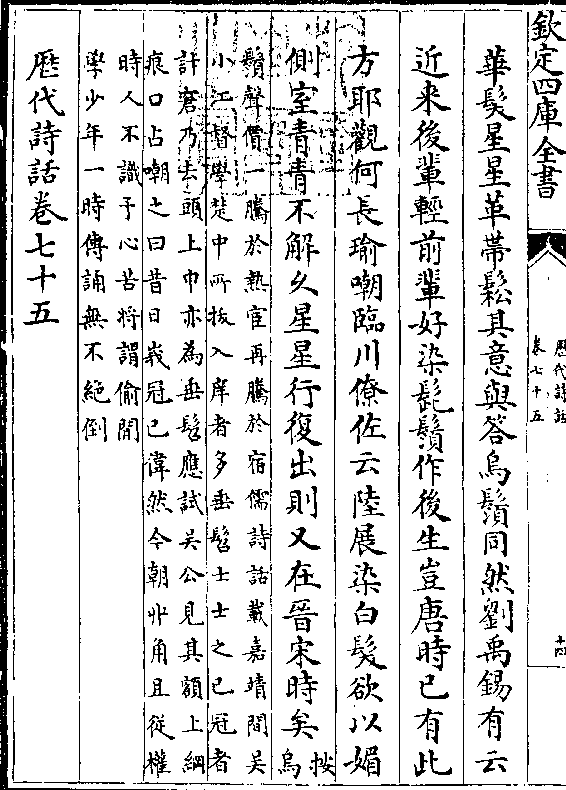 欽定四庫全書
厯代詩話
卷七十五
十四
華髮星星革帶鬆其意與答烏鬚同然劉禹錫有云
近来後輩輕前輩好染髭鬚作後生豈唐時已有此
方耶觀何長瑜嘲臨川僚佐云陸展染白髮欲以媚
側室青青不解久星星行復出則又在晉宋時矣
按
烏
鬚聲價一騰於熱宦再騰於宿儒詩話載嘉靖間吳
小江督學楚中所拔入庠者多垂髫士士之已冠者
計窘乃去頭上巾亦為垂髫應試吳公見其額上網
痕口占嘲之曰昔日峩冠已偉然今朝丱角且從權
時人不識予心苦將謂偷閒
學少年一時傳誦無不絶倒
厯代詩話卷七十五